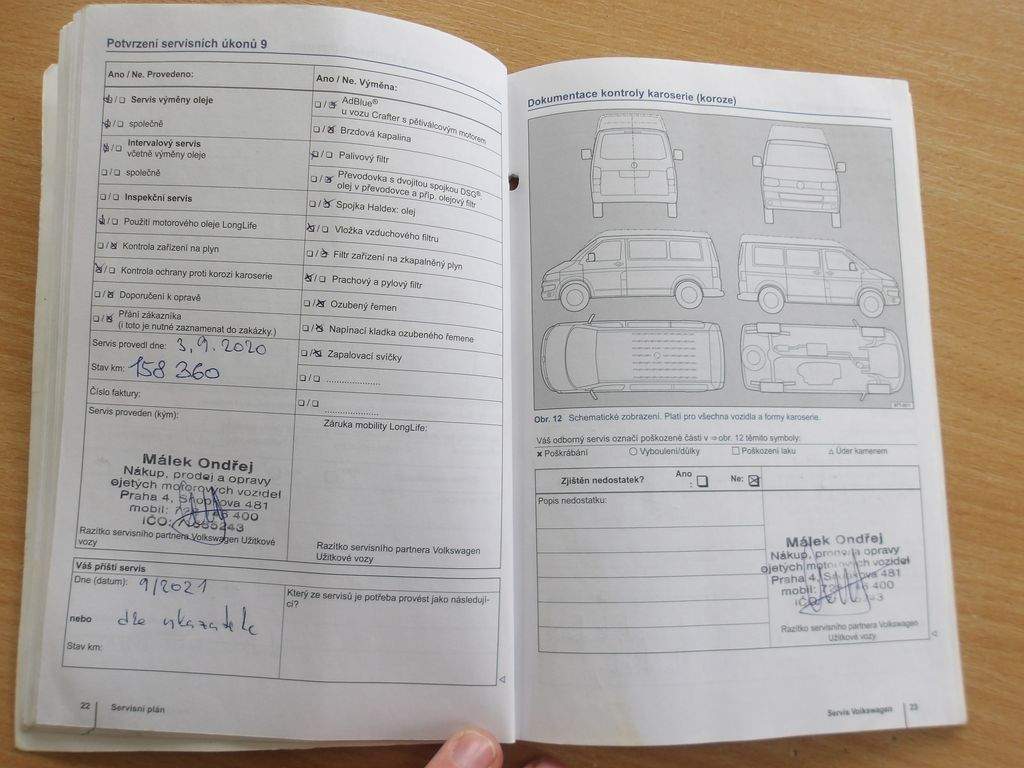 Potvrzení servisních úkonů 9
Ano / Ne. Provedeno:
Servis výměny oleje
společně
Intervalový servis
včetně výměny oleje
společně
Inspekční servis
Použití motorového oleje LongLife
Kontrola zařízení na plyn
Kontrola ochrany proti korozi karoserie
Doporučení k opravě
Přání zákazníka
(i toto je nutné zaznamenat do zakázky.)
Servis provedl dne: 3.9.2020
Stav km: 158 360
Číslo faktury:
Servis proveden (kým):
Málek Ondřej
Nákup, prodej a opravy
ojetých motorových vozidel
Praha 4, 481
mobil: 400
IČO:
Razítko servisního partnera Volkswagen Užitkové
vozy
Ano / Ne. Výměna:
AdBlue®
u vozu Crafter s pětiválcovým motorem
Brzdová kapalina
Palivový filtr
Převodovka s dvojitou spojkou DSG®:
olej v převodovce a příp. olejový filtr
Spojka Haldex: olej
Vložka vzduchového filtru
Filtr zařízení na zkapalněný plyn
Prachový a pylový filtr
Ozubený řemen
Napínací kladka ozubeného řemene
Zapalovací svíčky
....................
....................
Záruka mobility LongLife:
Razítko servisního partnera Volkswagen
Užitkové vozy
Váš příští servis
Dne (datum): 9/2021
nebo dle ukazatele
Stav km:
Který ze servisů je potřeba provést jako následují-
cí?
22 Servisní plán
Dokumentace kontroly karoserie (koroze)
Obr. 12 Schematické zobrazení. Platí pro všechna vozidla a formy karoserie.
Váš odborný servis označí poškozené části v ⇒ obr. 12 těmito symboly:
× Poškrábání ○ Vyboulení/důlky □ Poškození laku △ Úder kamenem
Zjištěn nedostatek? Ano
: Ne:
Popis nedostatku:
Málek Ondřej
Nákup, prodej a opravy
ojetých motorových vozidel
Praha 4, 481
mobil: 400
Razítko servisního partnera Volkswagen
Užitkové vozy
Servis Volkswagen 23